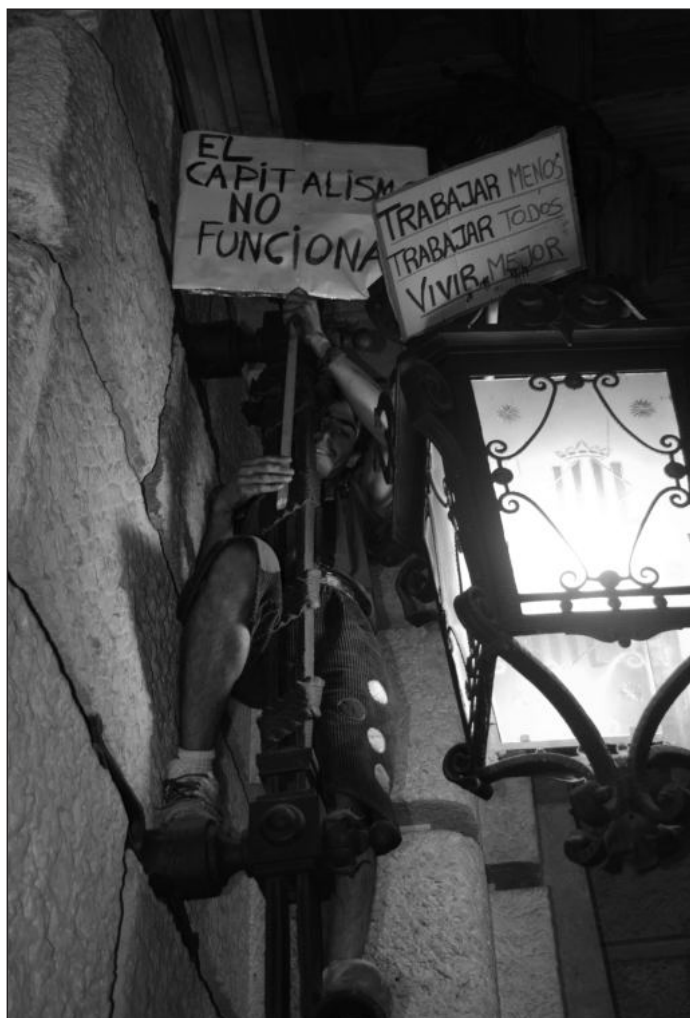 EL
CAPITALISMO
NO
FUNCIONA
TRABAJAR MENOS
TRABAJAR TODOS
VIVIR MEJOR